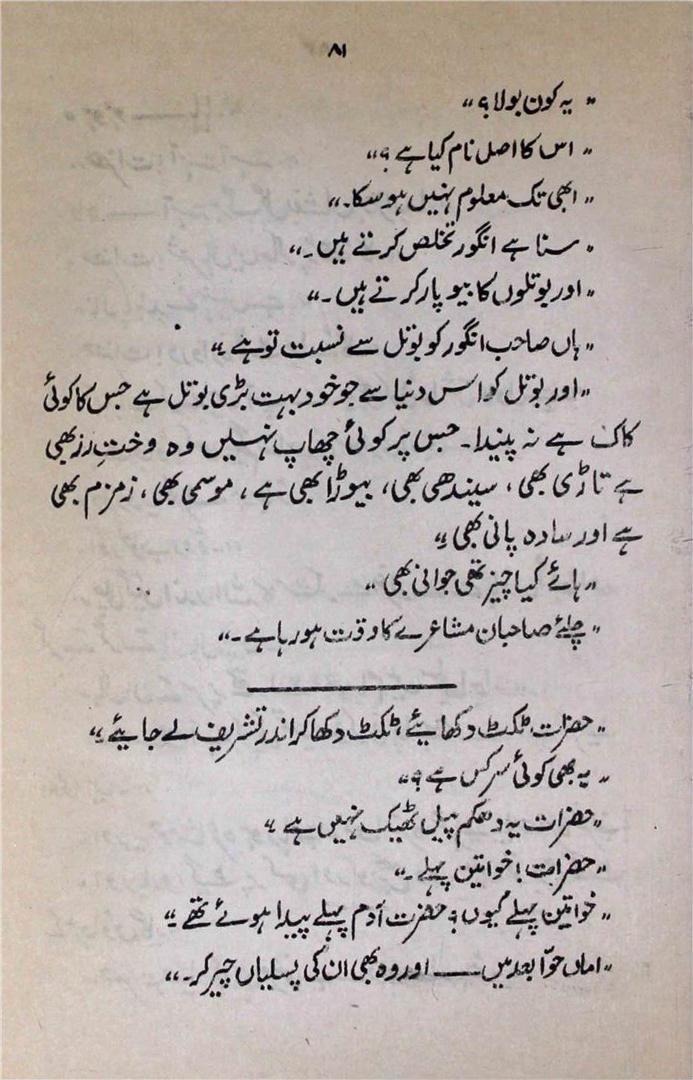 ۸۱
"یہ کون بولا؟"
"اس کا اصل نام کیا ہے؟"
"ابھی تک معلوم نہیں ہو سکا۔"
"سنا ہے انگور تخلص کرتے ہیں۔"
"اور بوتلوں کا بیوپار کرتے ہیں۔"
"ہاں صاحب انگور کو بوتل سے نسبت تو ہے"
"اور بوتل کو اس دنیا سے جو خود بہت بڑی بوتل ہے جس کا کوئی
کاک ہے نہ پیندا۔ جس پر کوئی چھاپ نہیں وہ وختِ رز بھی
ہے تاڑی بھی، سیندھی بھی، بیوڑا بھی ہے، موسمی بھی، زمزم بھی
ہے اور سادہ پانی بھی۔"
"ہائے کیا چیز تھی جوانی بھی"
"چلئے صاحبان مشاعرے کا وقت ہو رہا ہے۔"
"حضرات ٹکٹ دکھایئے، ٹکٹ دکھا کر اندر تشریف لے جایئے۔"
"یہ بھی کوئی سرکس ہے؟"
"حضرات یہ دھکم پیل ٹھیک نہیں ہے"
"حضرات! خواتین پہلے۔"
"خواتین پہلے کیوں؟ حضرت آدم پہلے پیدا ہوئے تھے۔"
"اماں حوّا بعد میں ـــــ اور وہ بھی ان کی پسلیاں چیر کر۔"